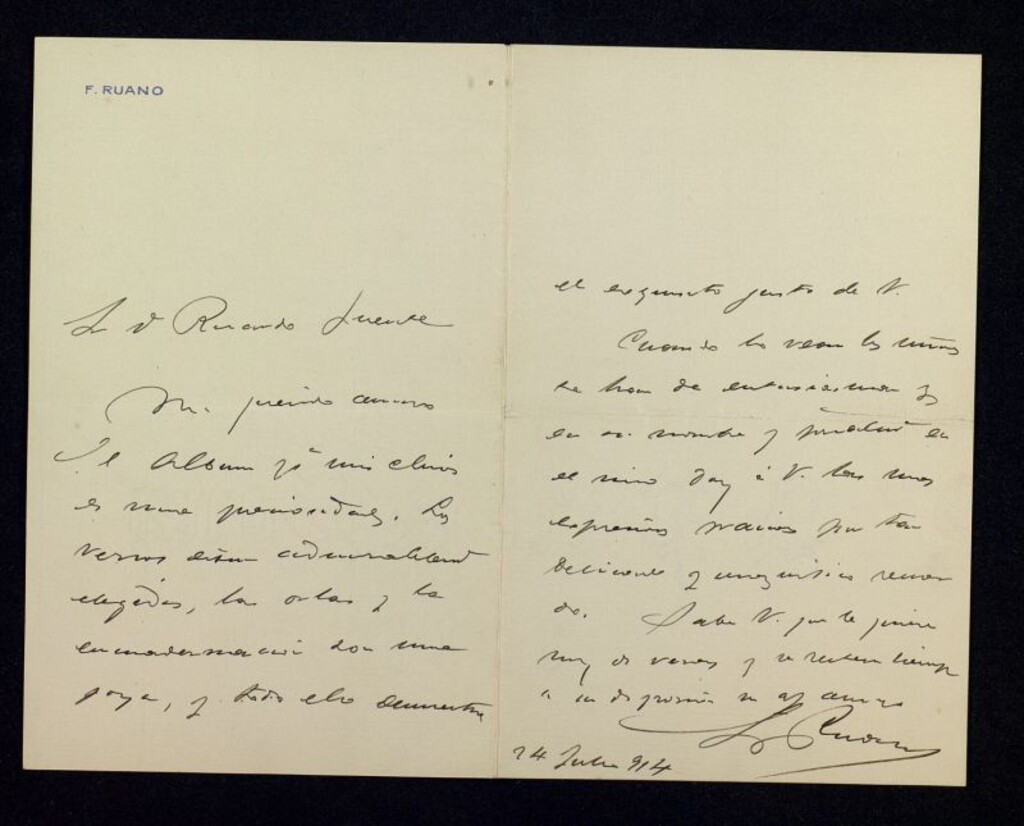 F. RUANO
Sr. D. Ricardo Fuente
Mi querido amigo
El Album pª mis chicos
es una preciosidad. Los
versos están admirablemente
elegidos, las orlas y la
encuadernación son una
joya, y todo ello demuestra
el exquisito gusto de V.
Cuando lo vean los niños
se han de entusiasmar y
en su nombre y en
el mio doy á V. las mas
expresivas gracias por tan
delicado y exquisito recuer
do. Sabe V. que le quiere
muy de veras y se reitera siempre
a su disposición su af amigo
F. Ruano
24 Julio 914